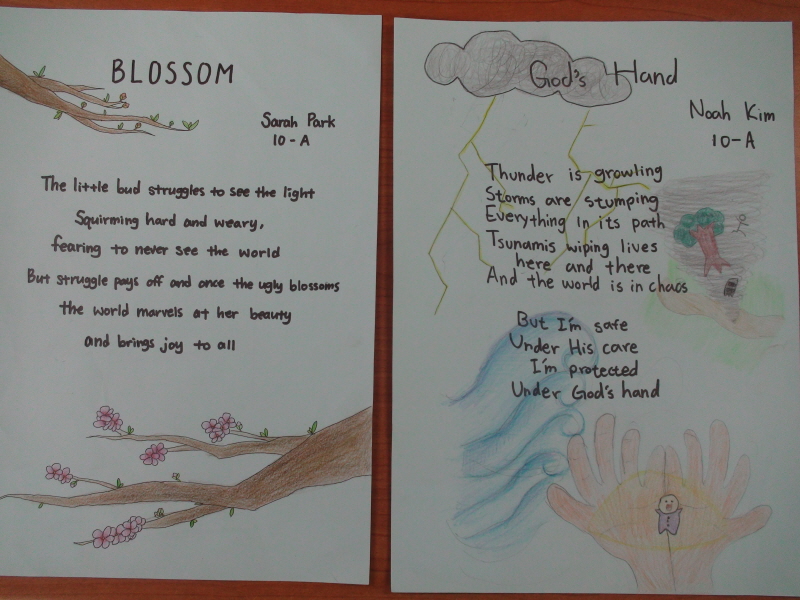 BLOSSOM
Sarah Park
10-A
The little bud struggles to see the light
Squirming hard and weary,
fearing to never see the world
But struggle pays off and once the ugly blossoms
the world marvels at her beauty
and brings joy to all
God's Hand
Noah Kim
10-A
Thunder is growling
Storms are stumping
Everything In its path
Tsunamis wiping lives
here and there
And the world is in chaos
But I'm safe
Under His care
I'm protected
Under God's hand